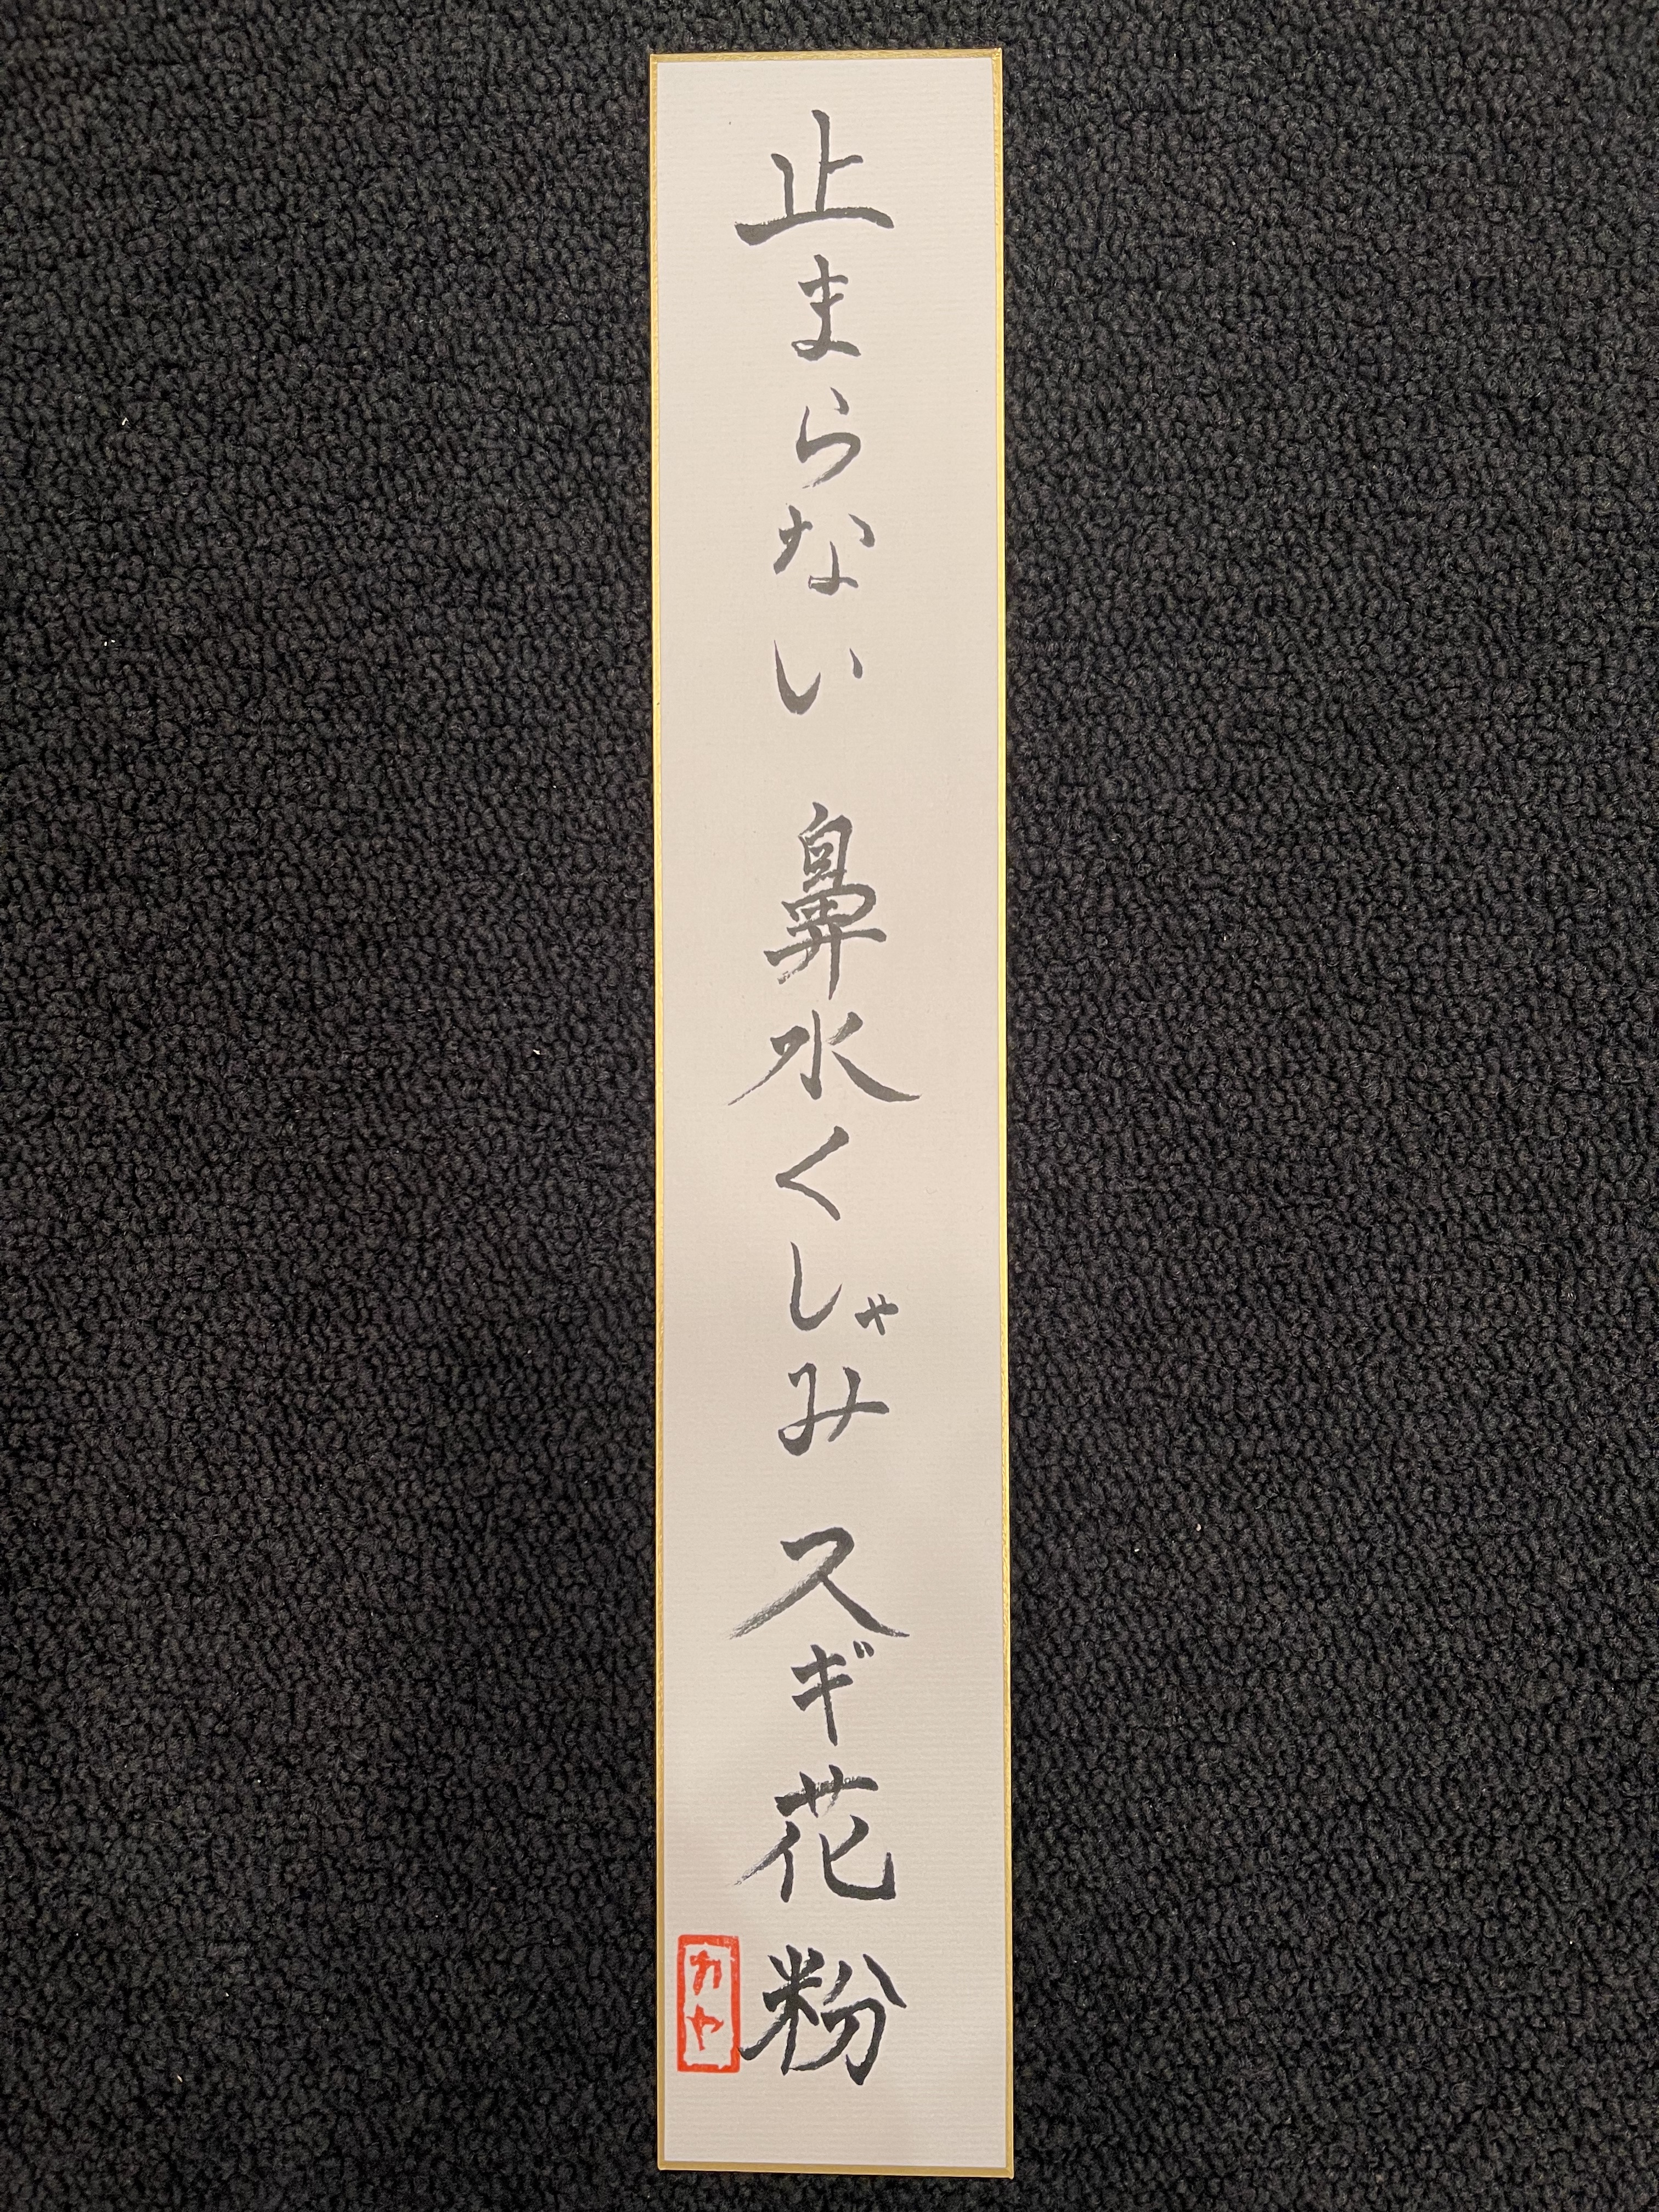 止まらない 鼻水くしゃみ スギ花粉
カヤ